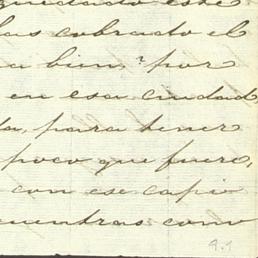 quedado este
las cobrado el
a bien? por
en esa ciudad
para tener
poco que fuere,
con ese capio
cuentras como
4.1